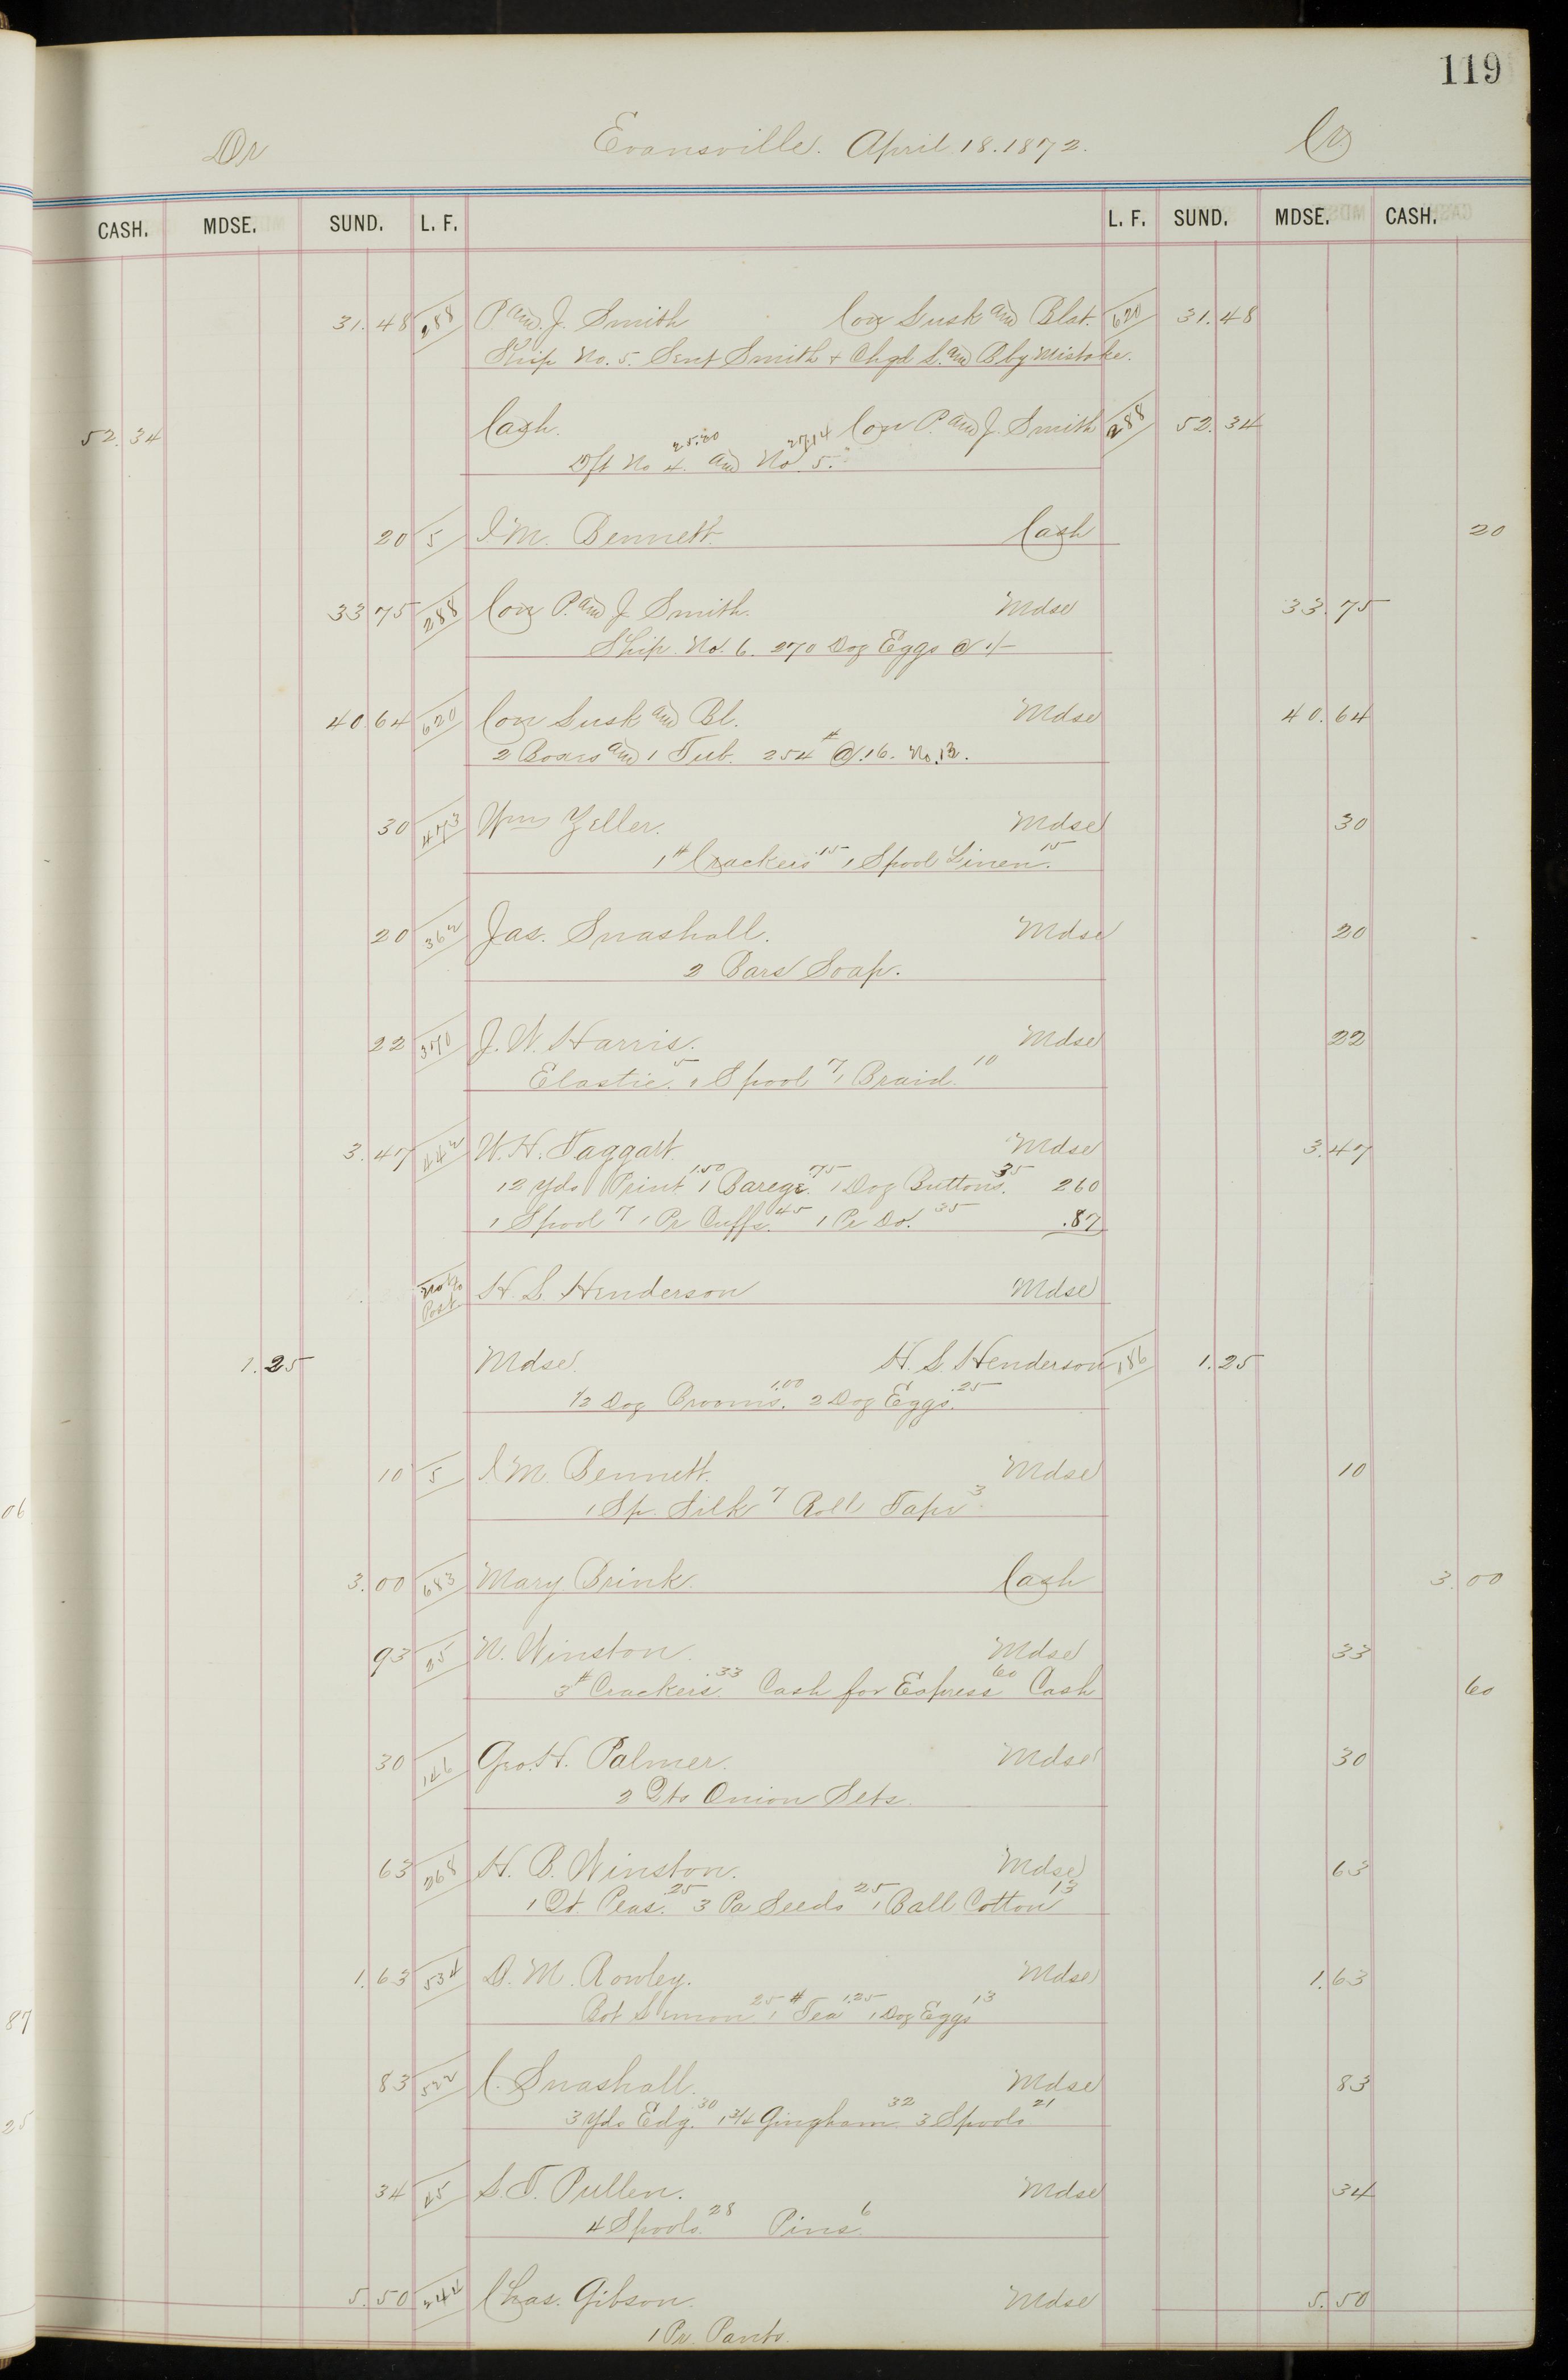 119
Dr Evansville. April 18. 1872. Cr
CASH. MDSE. SUND. L. F. L. F. SUND. MDSE. CASH.
31.48 288 P. and J. Smith Con Lusk and Blat. 620 31.48
Ship No. 5. Sent Smith + Chgd L. and B by Mistake.
52.34 Cash. Con P. and J. Smith 288 52.34
Dft No 4. 25.20 and No. 5. 27.14
20 5 I. M. Bennett. Cash 20
33 75 288 Con P. and J. Smith. Mdse 33.75
Ship. No. 6. 270 Doz Eggs @ 1/-
40 64 620 Con Lusk and Bl. Mdse 40.64
2 Boxes and 1 Tub. 254 # @ .16. No. 13.
30 473 Wm Zeller. Mdse 30
1 # Crackers .15 1 Spool Linen. 15
20 362 Jas. Snashall. Mdse 20
2 Bars Soap.
22 370 J. W. Harris. Mdse 22
Elastic. 5 1 Spool 7 1 Braid. 10
3.47 442 W. H. Taggart. Mdse 3.47
12 Yds Print 1.50 1 Barege. .75 1 Doz Buttons. 35 2 60
1 Spool 7 1 Pr Cuffs. .45 1 Pr Do. 35 .87
No to Post H. S. Henderson Mdse
1.25 Mdse. H. S. Henderson 186 1.25
1/2 Doz Brooms. 1.00 2 Doz Eggs. .25
10 5 I. M. Bennett. Mdse 10
1 Sp. Silk 7 Roll Tape 3
3.00 683 Mary Brink. Cash 3.00
93 25 N. Winston. Mdse 33
3 # Crackers. .33 Cash for Express 60 Cash 60
30 146 Geo. H. Palmer. Mdse 30
2 Qts Onion Sets.
63 268 H. B. Winston. Mdse 63
1 Qt. Peas. .25 3 Pa Seeds 25 1 Ball Cotton 13
1.63 534 D. M. Rowley. Mdse 1.63
Bot Lemon 25 1 # Tea 1.25 1 Doz Eggs 13
83 522 C. Snashall. Mdse 83
3 Yds Edg. .30 1 3/4 Gingham 32 3 Spools 21
34 45 S. T. Pullen. Mdse 34
4 Spools. 28 Pins 6
5.50 244 Chas. Gibson. Mdse 5.50
1 Pr. Pants.
06
87
25